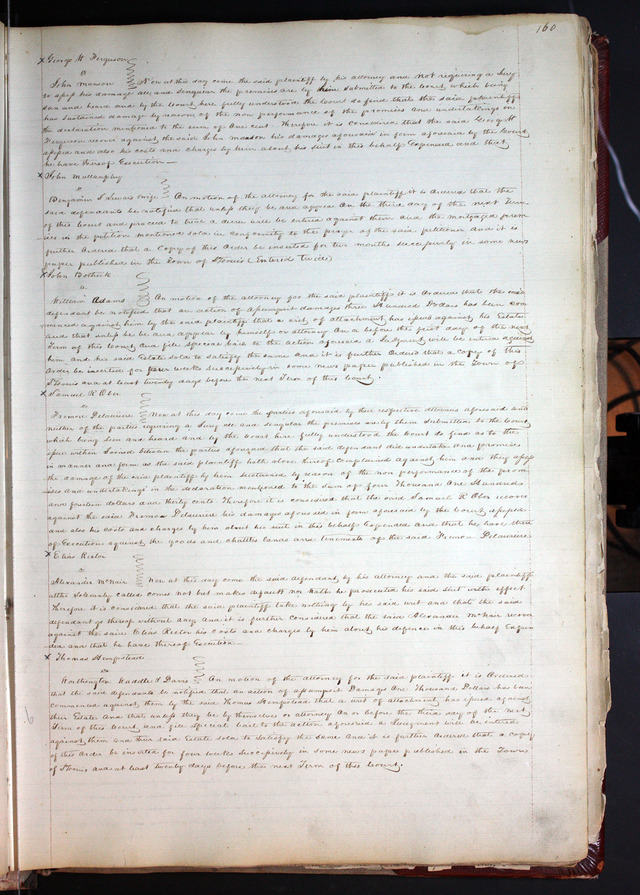 160
x George H Ferguson
vs
John Monson Now at this day come the said plaintiff by his attorney and not requiring a Jury
to assess his damage all and Singular the premises are by him submitted to the Court which being
seen and heard and by the Court here fully understood the Court do find that the said plaintiff
has sustained damage by reason of the non performance of the promises and undertakings in
the declaration mentioned to the sum of one cent. Therefore it is considered that the said George H
Ferguson recover against the said John Monson his damages aforesaid in form aforesaid by the Court
assessed and also his costs and charges by him about his suit in this behalf Expended and that
he have thereof Execution —
x John Mullanphy
vs
Benjamin & Lewis On motion of the attorney for the said plaintiff it is ordered that the
said defendants be notified that unless they be and appear on the third day of the next Term
of this Court and proceed to trial a decree will be entered against them and the mortgaged prem
ises in the petition mentioned sold in conformity to the prayer of the said petitioner And it is
further Ordered that a Copy of this Order be inserted for two months successively in some news
paper published in the Town of St Louis (Entered Twice)
x John
vs
William Adams On motion of the attorney for the said plaintiff it is Ordered that the said
defendant be notified that an action of assumpsit damages three Hundred Dollars has been com
menced against him by the said plaintiff that a writ of attachment has issued against his Estate
and that unless he be and appear by himself or attorney on or before the first day of the next
Term of this Court and file special bail to the action aforesaid a Judgment will be entered against
him and his said Estate sold to satisfy the same and it is further Ordered that a Copy of this
Order be inserted for four weeks successively in some news paper published in the Town of
St Louis and at least twenty days before the next Term of this Court.
x Samuel R Ober
vs
Fremon Delauriere Now at this day come the parties aforesaid by their respective attornies aforesaid and
neither of the parties requiring a Jury all and singular the premises are by them submitted to the Court
which being seen and heard and by the Court here fully understood the Court do find as to the
issue within Joined between the parties aforesaid that the said defendant did undertake and promise
in manner and form as the said plaintiff hath above thereof complained against him and they assess
the damage of the said plaintiff by him sustained by reason of the non performance of the prom
ises and undertakings in the declaration mentioned to the Sum of four Thousand One Hundred
and fourteen dollars and thirty cents Therefore it is considered that the said Samuel R Ober recover
against the said Fremon Delauriere his damages aforesaid in form aforesaid by the Court assessed
and also his costs and charges by him about his suit in this behalf Expended And that he have there
of Execution against the goods and chattles lands and tenements of the said Fremon Delauriere
x Elias Rector
vs
Alexander McNair Now at this day come the said defendant by his attorney and the said plaintiff
altho Solemnly called comes not but makes default nor hath he prosecuted his said Suit with effect
Therefore it is considered that the said plaintiff take nothing by his said writ and that the said
defendant go thereof without day And it is further considered that the said Alexander McNair recover
against the said Elias Rector his Costs and charges by him about his defence in this behalf Expen
ded and that he have thereof Execution —
x Thomas Hempstead
vs
Worthington Waddle & Davis On motion of the attorney for the said plaintiff it is Ordered
that the said defendants be notified that an action of assumpsit Damages One Thousand Dollars has been
commenced against them by the said Thomas Hempstead that a writ of attachment has issued against
their Estate And that unless they be by themselves or attorney On or before the third day of the next
Term of this Court and file Special bail to the action aforesaid a Judgment will be entered
against them and their said Estate sold to satisfy the Same And it is further Ordered that a copy
of this Order be inserted for four weeks Successively in some news paper published in the Town
of St Louis and at least twenty days before the next Term of this Court.